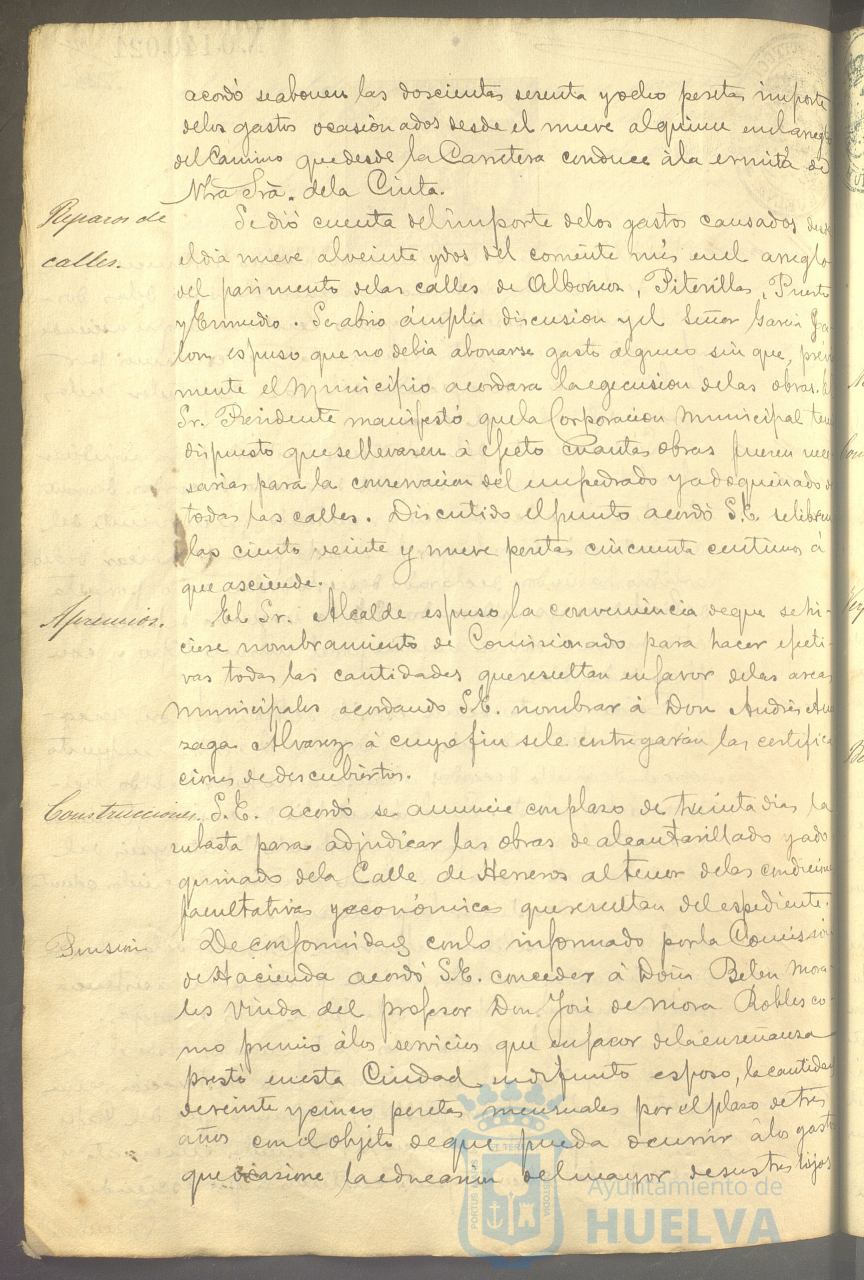 acordó se abonen las doscientas sesenta y ocho pesetas importe
de los gastos ocasionados desde el nueve al quince en el arreglo
del Camino que desde la Carretera conduce á la ermita de
Ntra Sra. de la Cinta.
Reparos de
calles.
Se dió cuenta del importe de los gastos causados desde
el dia nueve al veinte y dos del corriente mes en el arreglo
del pavimento de las calles de Albornoz, Piterillas, Puerto
y Enmedio. Se abrio ámplia discusion y el Señor Garcia
espuso que no debia abonarse gasto alguno sin que, previa
mente el Municipio acordara la egecusion de las obras. El
Sr. Presidente manifestó que la Corporacion Municipal tenia
dispuesto que se llevasen á efecto cuantas obras fueren nece
sarias para la conservacion del empedrado y adoquinado de
todas las calles. Discutido el punto acordó S.E. se libren
las ciento veinte y nueve pesetas cincuenta centimos á
que asciende.
Apremios.
El Sr. Alcalde espuso la conveniencia de que se hi-
ciese nombramiento de Comisionado para hacer efecti-
vas todas las cantidades que resultan en favor de las arcas
Municipales acordando S.E. nombrar á Don Andrés
Alvarez á cuyo fin se le entregarán las certifica
ciones de descubiertos.
Construcciones.
S.E. acordó se anuncie con plazo de treinta dias la
subasta para adjudicar las obras de alcantarillado y ado
quinado de la Calle de Herreros al tenor de las condiciones
facultativas y económicas que resultan del espediente.
Pension
De conformidad con lo informado por la Comision
de Hacienda acordó S.E. conceder á Doña Belen Mora-
les viuda del profesor Don José de Mora Robles co-
mo premio á los servicios que en favor de la enseñanza
prestó en esta Ciudad su difunto esposo, la cantidad
de veinte y cinco pesetas mensuales por el plazo de tres
años con el objeto de que pueda ocurrir á los gastos
que ocasione la educacion del mayor de sus tres hijos
PORTUS
CUSTODIA
Ayuntamiento de
HUELVA